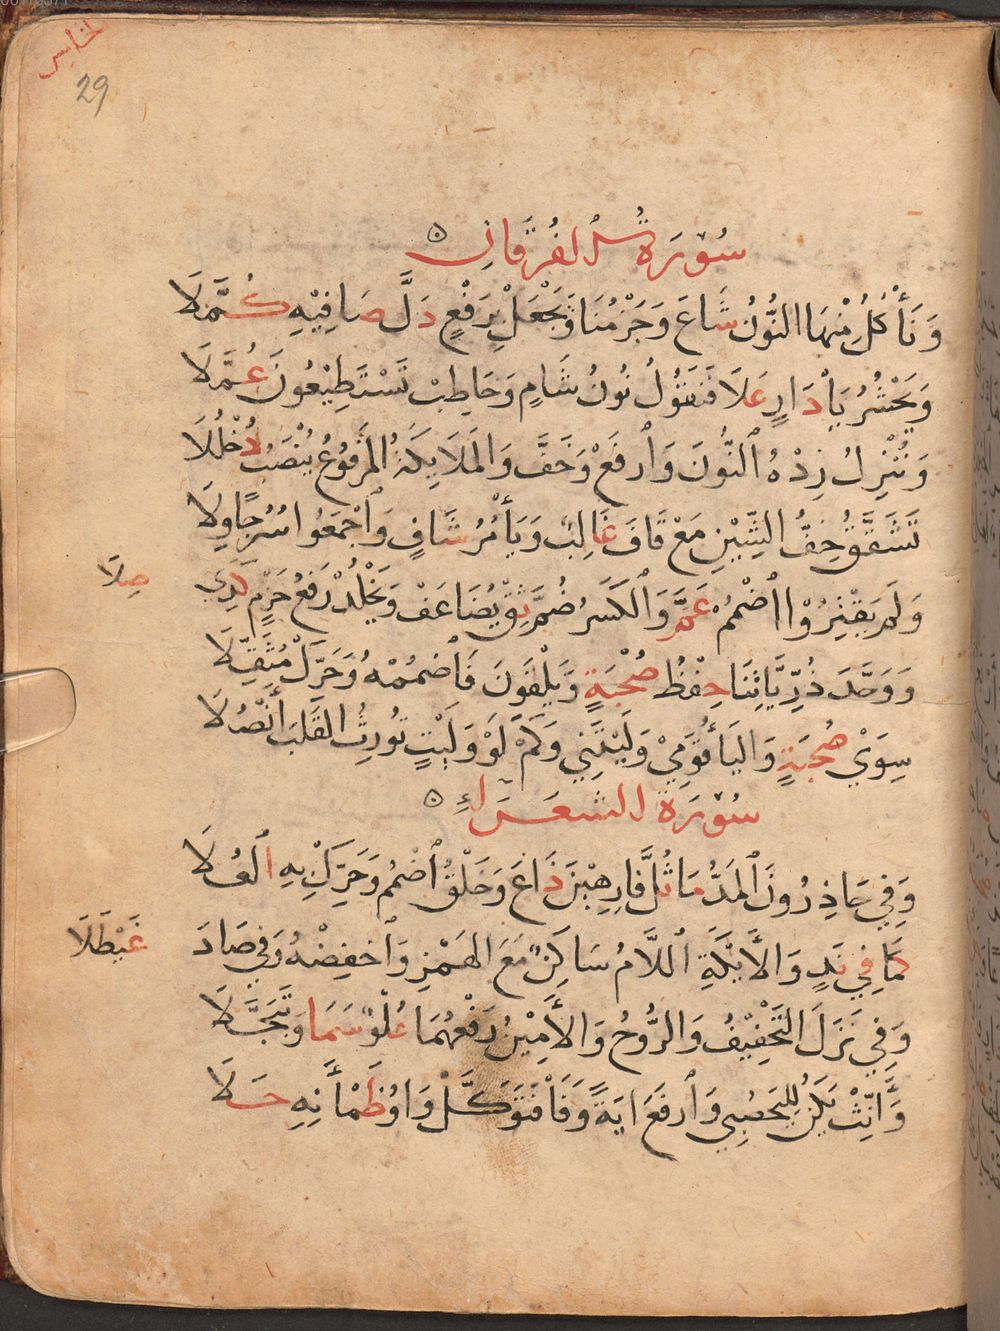 خامس
29
سُوْرَةُ الفُرْقَانِ
وَنَأْكُلُ مِنْهَا النُّوْنُ شَاعَ وَجَزْمُنَا وَيَجْعَلْ بِرَفْعٍ دَلَّ صَافِيْهِ كُمَّلَا
وَيَحْشُرُ يَا دَارٍ عَلَا فَنَقُوْلُ نُونُ شَامٍ وَخَاطِبْ تَسْتَطِيْعُونَ عُمَّلَا
وَنُنْزِلُ زِدْهُ ٱلنُّونَ وَٱرْفَعْ وَخَفَّ وَالْمَلَايِكَةُ الْمَرْفُوْعُ يُنْصَبُ دُخْلُلَا
تَشَقَّقُ خِفُّ الشِّيْنِ مَعْ قَافَ غَالِبٌ وَيَأْمُرُ شَافٍ وَٱجْمَعُوا سُرُجًا وِلَا
وَلَمْ يَقْتِرُوْا ٱضْمُمْ عَمَّ وَٱلْكَسْرُ ضُمَّ ثِقْ يُضَاعَفْ وَيَخْلُدْ رَفْعُ جَزْمٍ كَذِي صِلَا
وَوَحَّدَ ذُرِّيَّاتِنَا حِفْظُ صُحْبَةٍ وَيَلْقَوْنَ فَٱضْمُمْهُ وَحَرِّكْ مُثَقِّلَا
سِوَىْ صُحْبَةٍ وَاليَا قَوْمِيْ وَلَيْتَنِي وَكَمْ لَوْ وَلَيْتٍ تُورِثُ القَلْبَ أَنْصُلَا
سُوْرَةُ الشُّعَرَاءِ
وَفِي حَاذِرُونَ ٱلْمَدُّ مَا ثُلَّ فَارِهِيْنَ ذَاعَ وَخَلْقُ ٱضْمُمْ وَحَرِّكْ بِهِ ٱلْعُلَا
كَمَا فِي نَدٍ وَالأَيْكَةِ ٱللَّامُ سَاكِنٌ مَعَ الهَمْزِ وَٱخْفِضْهُ وَفِي صَادَ غَيْطَلَا
وَفِي نَزَلَ التَّخْفِيْفُ وَالرُّوْحُ وَالأَمِيْنُ رَفْعُهُمَا عُلْوٌ سَمَا وَتَبَجَّلَا
وَأَنِّثْ يَكُنْ لِلْيَحْصُبِي وَٱرْفَعْ ايَةً وَفَا فَتَوَكَّلْ وَاوُ ظَمْأَنِهِ حَلَا